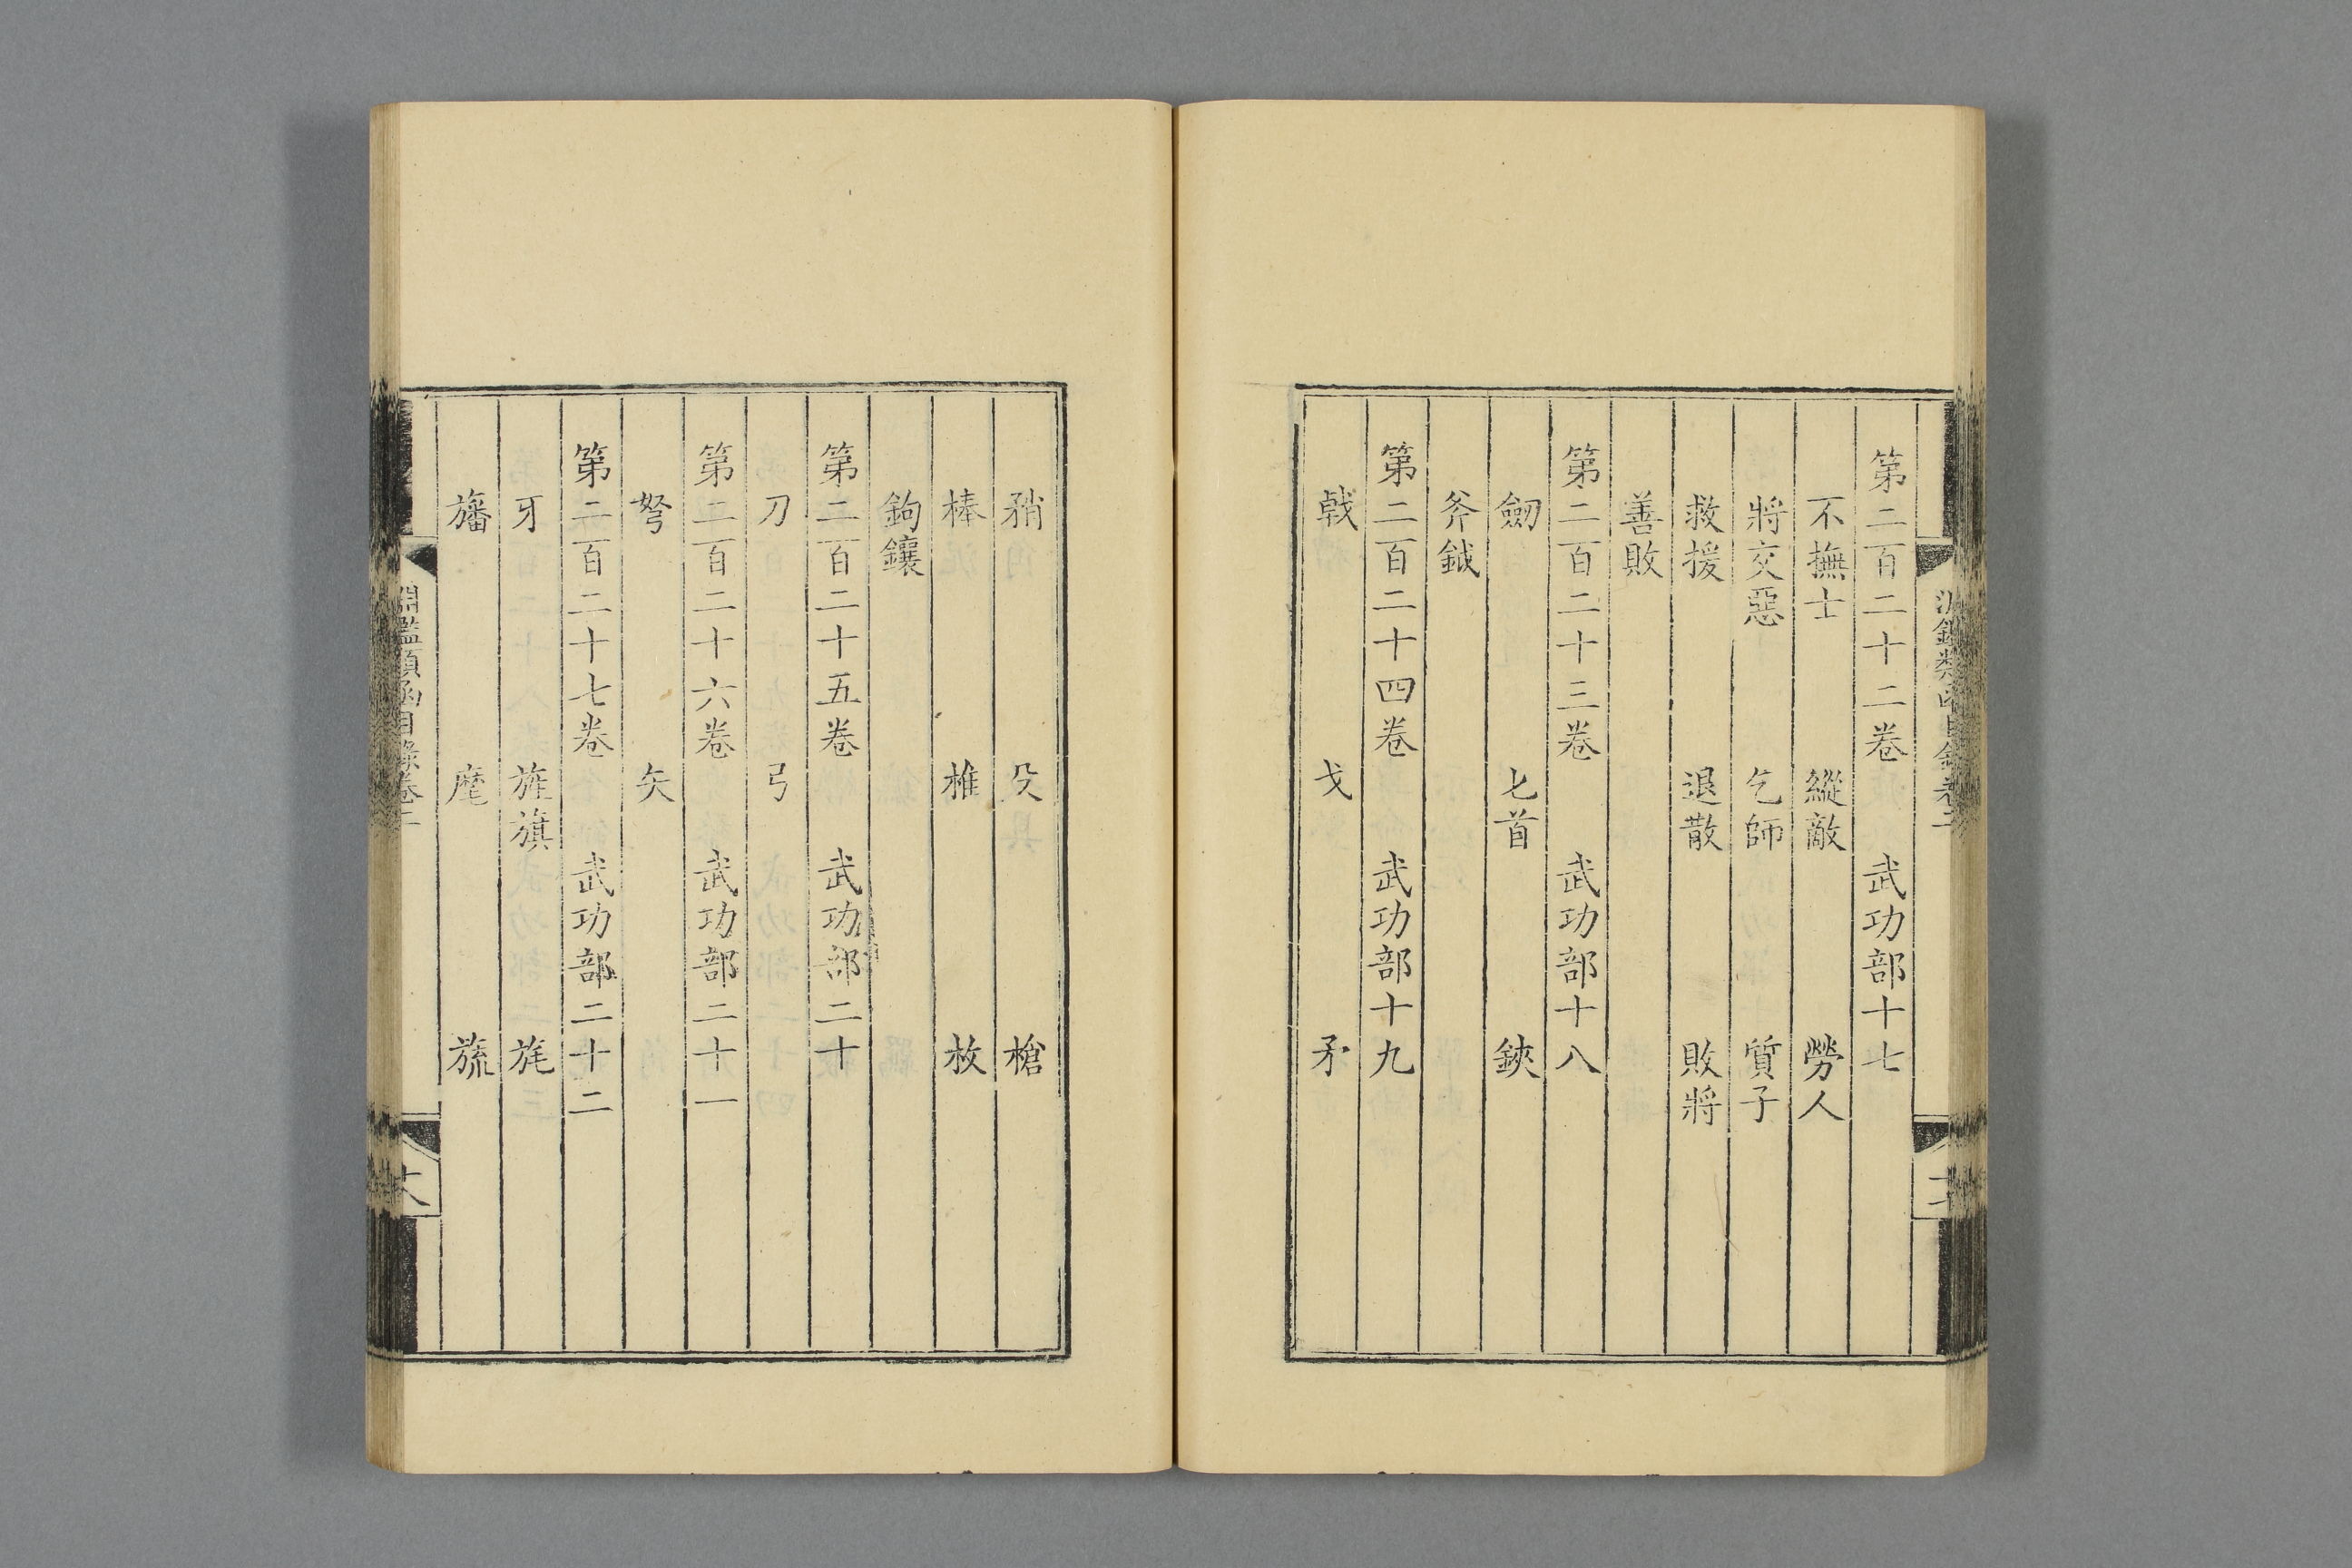 第二百二十二卷 武功部十七
不撫士 縱敵 勞人
將交惡 乞師 質子
救援 退散 敗將
善敗
第二百二十三卷 武功部十八
劒 匕首 鋏
斧鉞
第二百二十四卷 武功部十九
戟 戈 矛
矟 殳 槍
棒 椎 杸
鉤鑲
第二百二十五卷 武功部二十
刀 弓
第二百二十六卷 武功部二十一
弩 矢
第二百二十七卷 武功部二十二
牙 旌旗 旄
旛 麾 旒
淵鑑類函目錄卷二